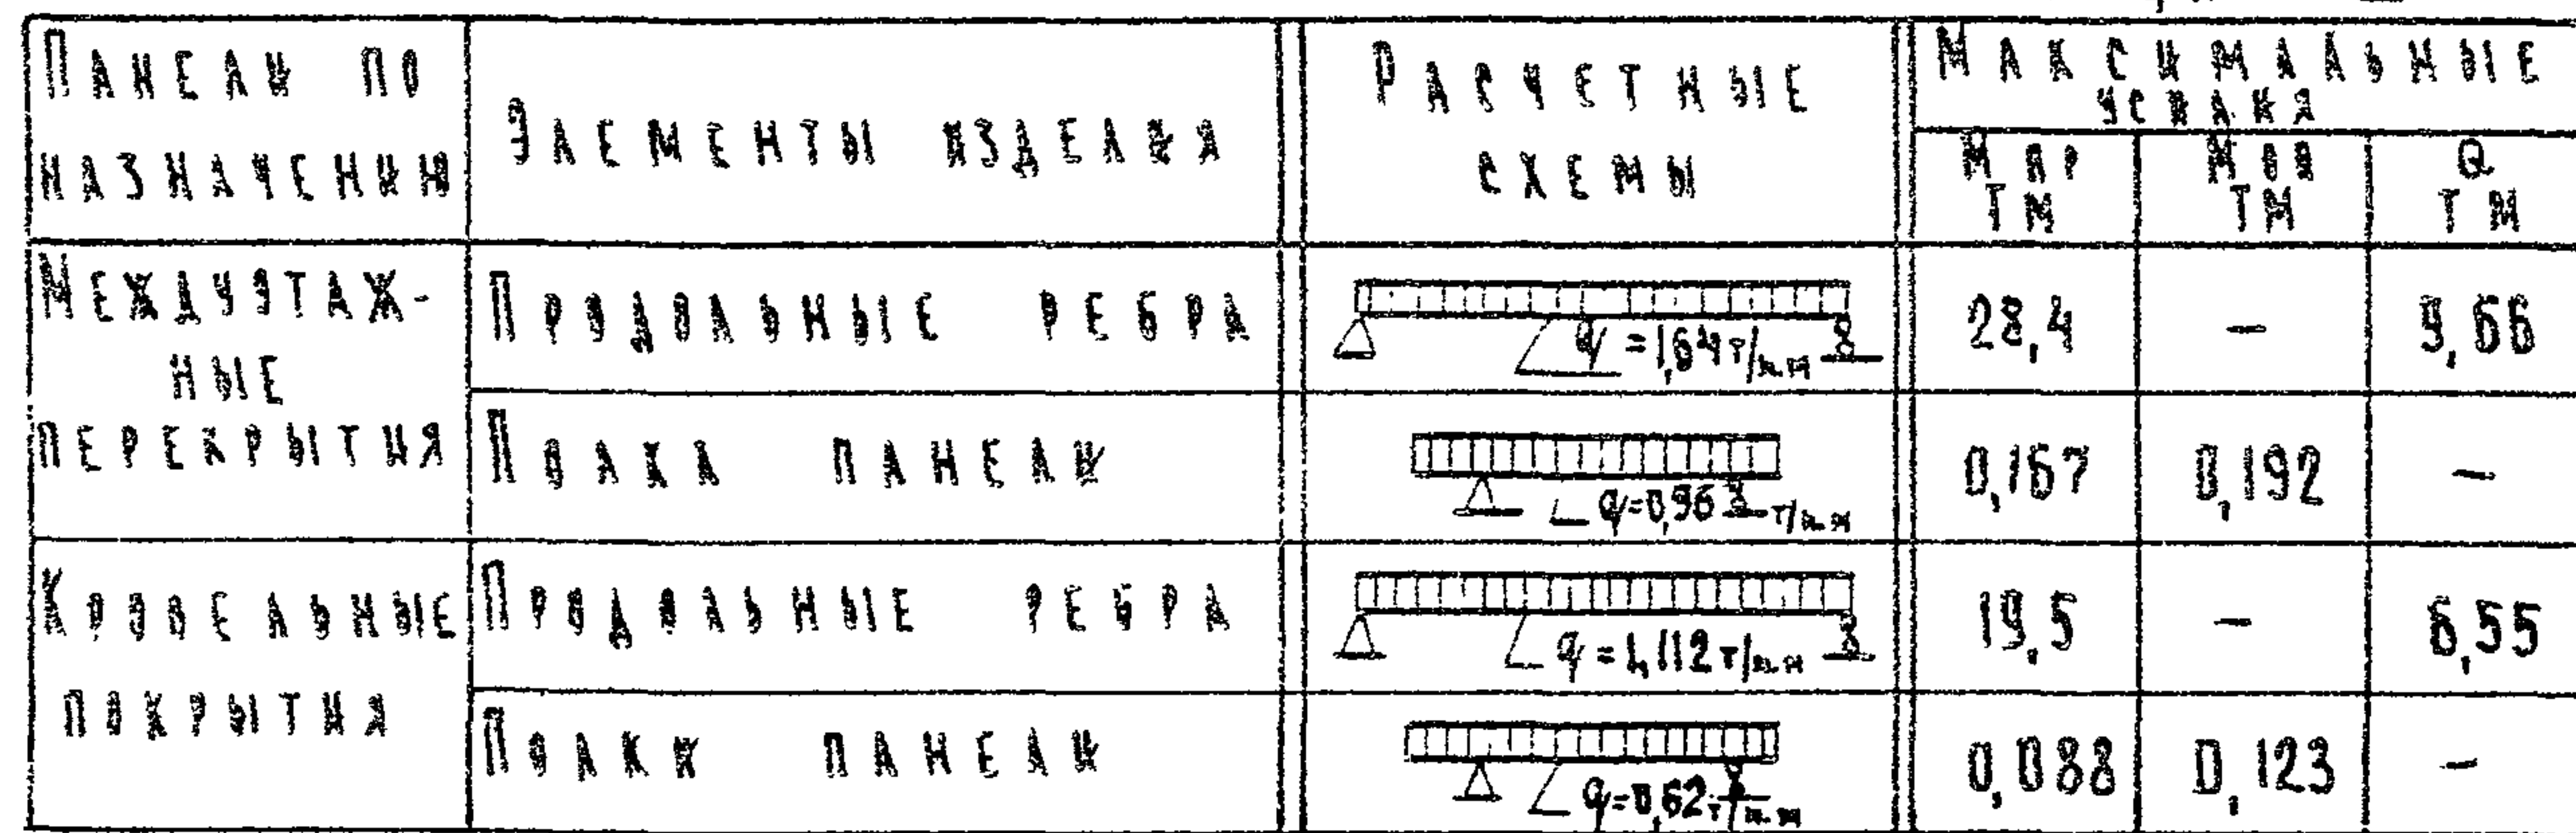 ПАНЕЛИ ПО
НАЗНАЧЕНИЮ
ЭЛЕМЕНТЫ ИЗДЕЛИЯ
РАСЧЕТНЫЕ
СХЕМЫ
МАКСИМАЛЬНЫЕ
УСИЛИЯ
М ПР
ТМ
М ОП
ТМ
Q
ТМ
МЕЖДУЭТАЖ-
НЫЕ
ПЕРЕКРЫТИЯ
ПРОДОЛЬНЫЕ РЕБРА
q = 1,64 т/п.м
28,4
—
9,66
ПОЛКА ПАНЕЛИ
q=0,963 т/п.м
0,167
0,192
—
КРОВЕЛЬНЫЕ
ПОКРЫТИЯ
ПРОДОЛЬНЫЕ РЕБРА
q = 1,112 т/п.м
19,5
—
6,55
ПОЛКИ ПАНЕЛИ
q=0,62 т/п.м
0,088
0,123
—